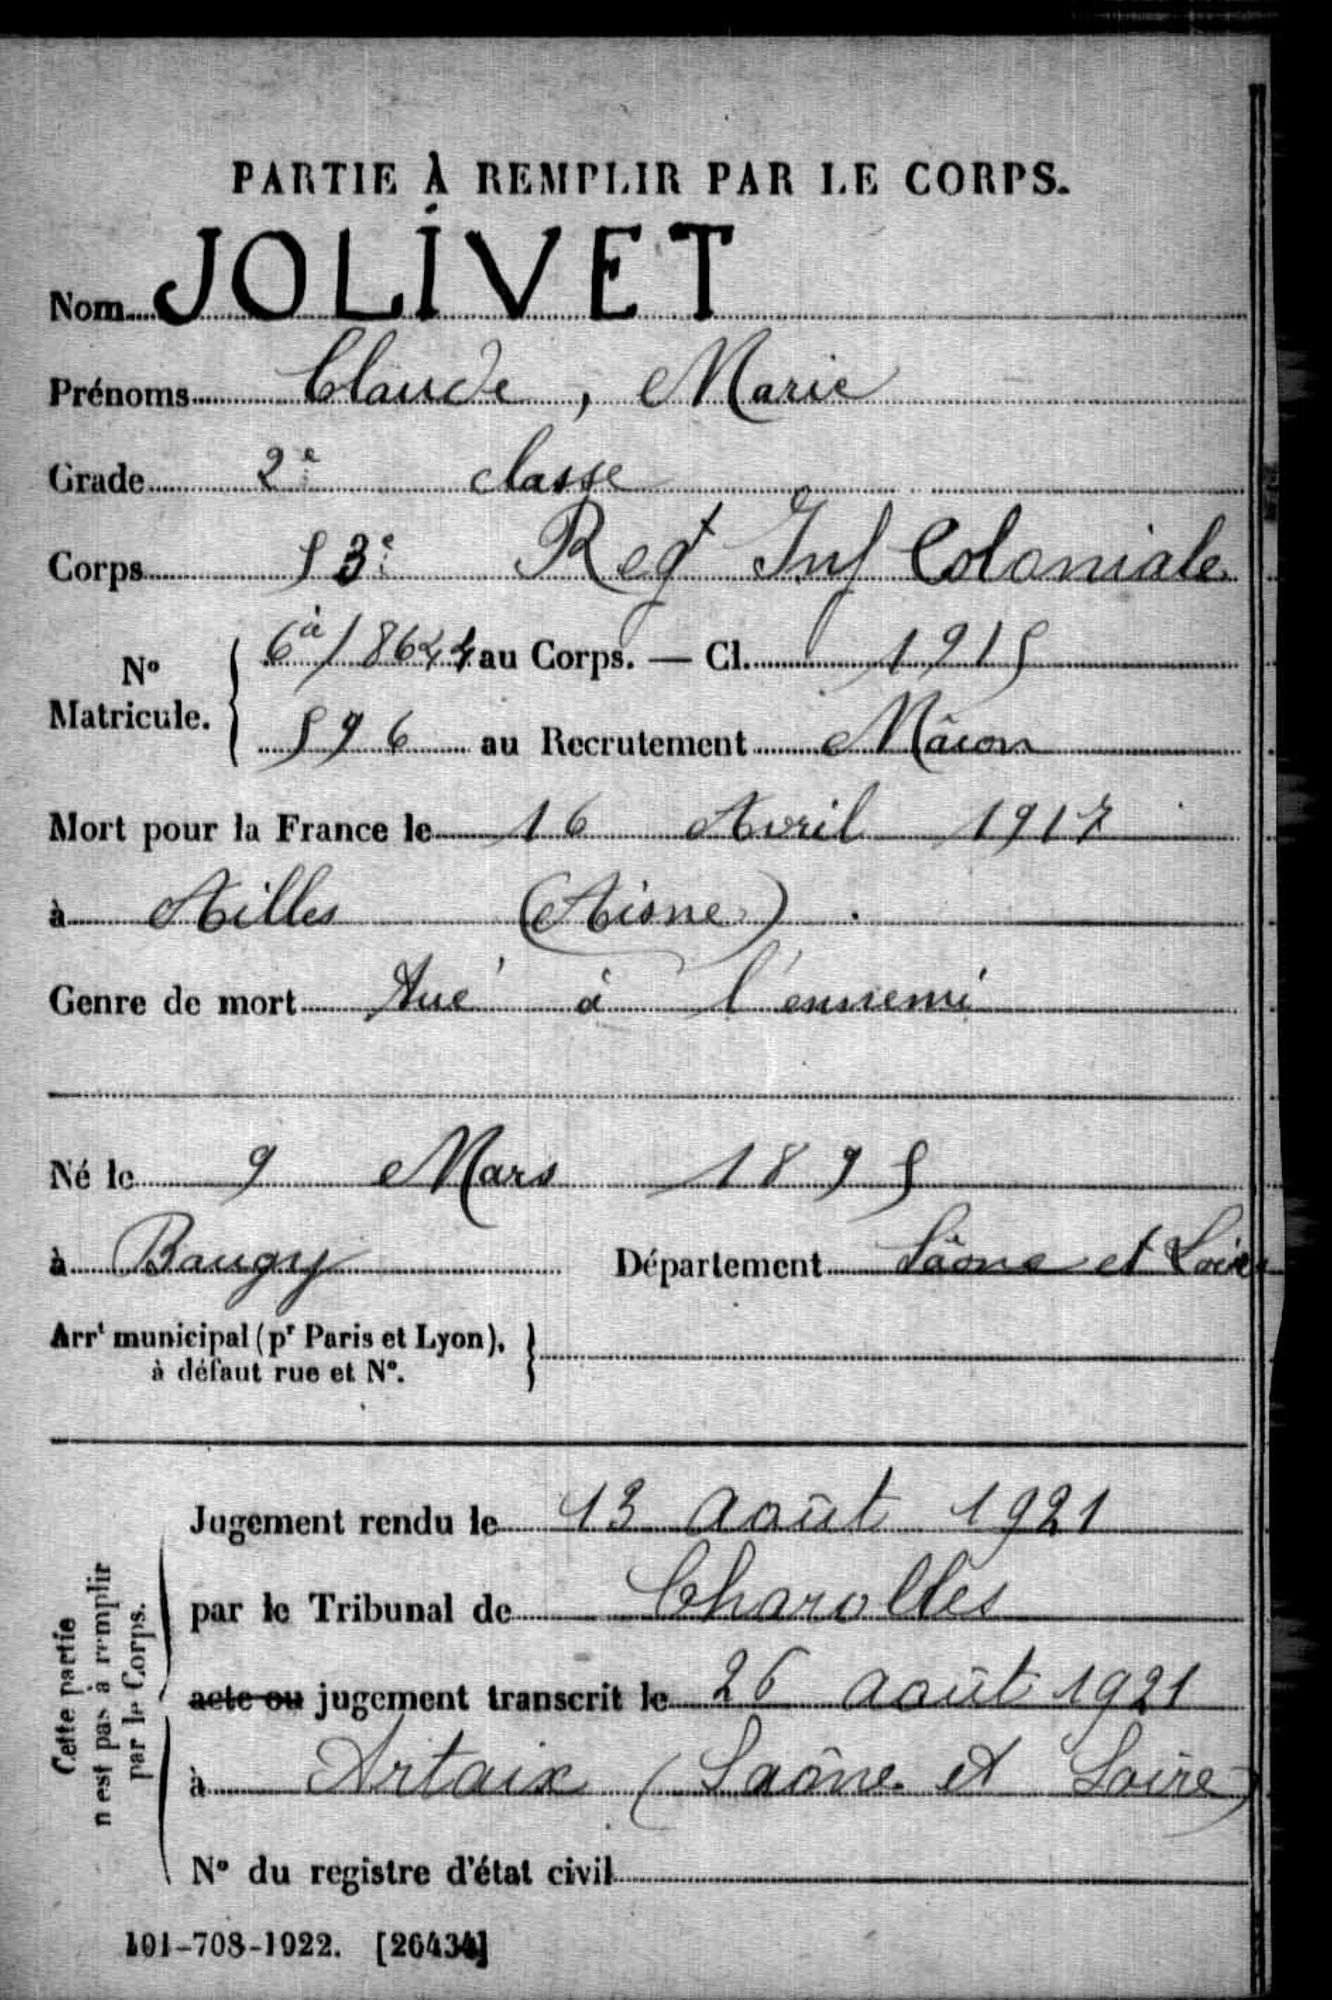 PARTIE À REMPLIR PAR LE CORPS.
Nom JOLIVET
Prénoms Claude, Marie
Grade 2e classe
Corps 53e Regt Inf Coloniale
N° Matricule. { 6a/8644 au Corps. — Cl. 1915
596 au Recrutement Mâcon
Mort pour la France le 16 Avril 1917
à Ailles (Aisne).
Genre de mort Tué à l'ennemi
Né le 9 Mars 1895
à Baugy Département Saône et Loire
Arrt municipal (pr Paris et Lyon), }
à défaut rue et N°.
Cette partie n'est pas à remplir par le Corps.
Jugement rendu le 13 août 1921
par le Tribunal de Charolles
acte ou jugement transcrit le 26 août 1921
à Artaix (Saône et Loire)
N° du registre d'état civil
101-708-1922. [26434]